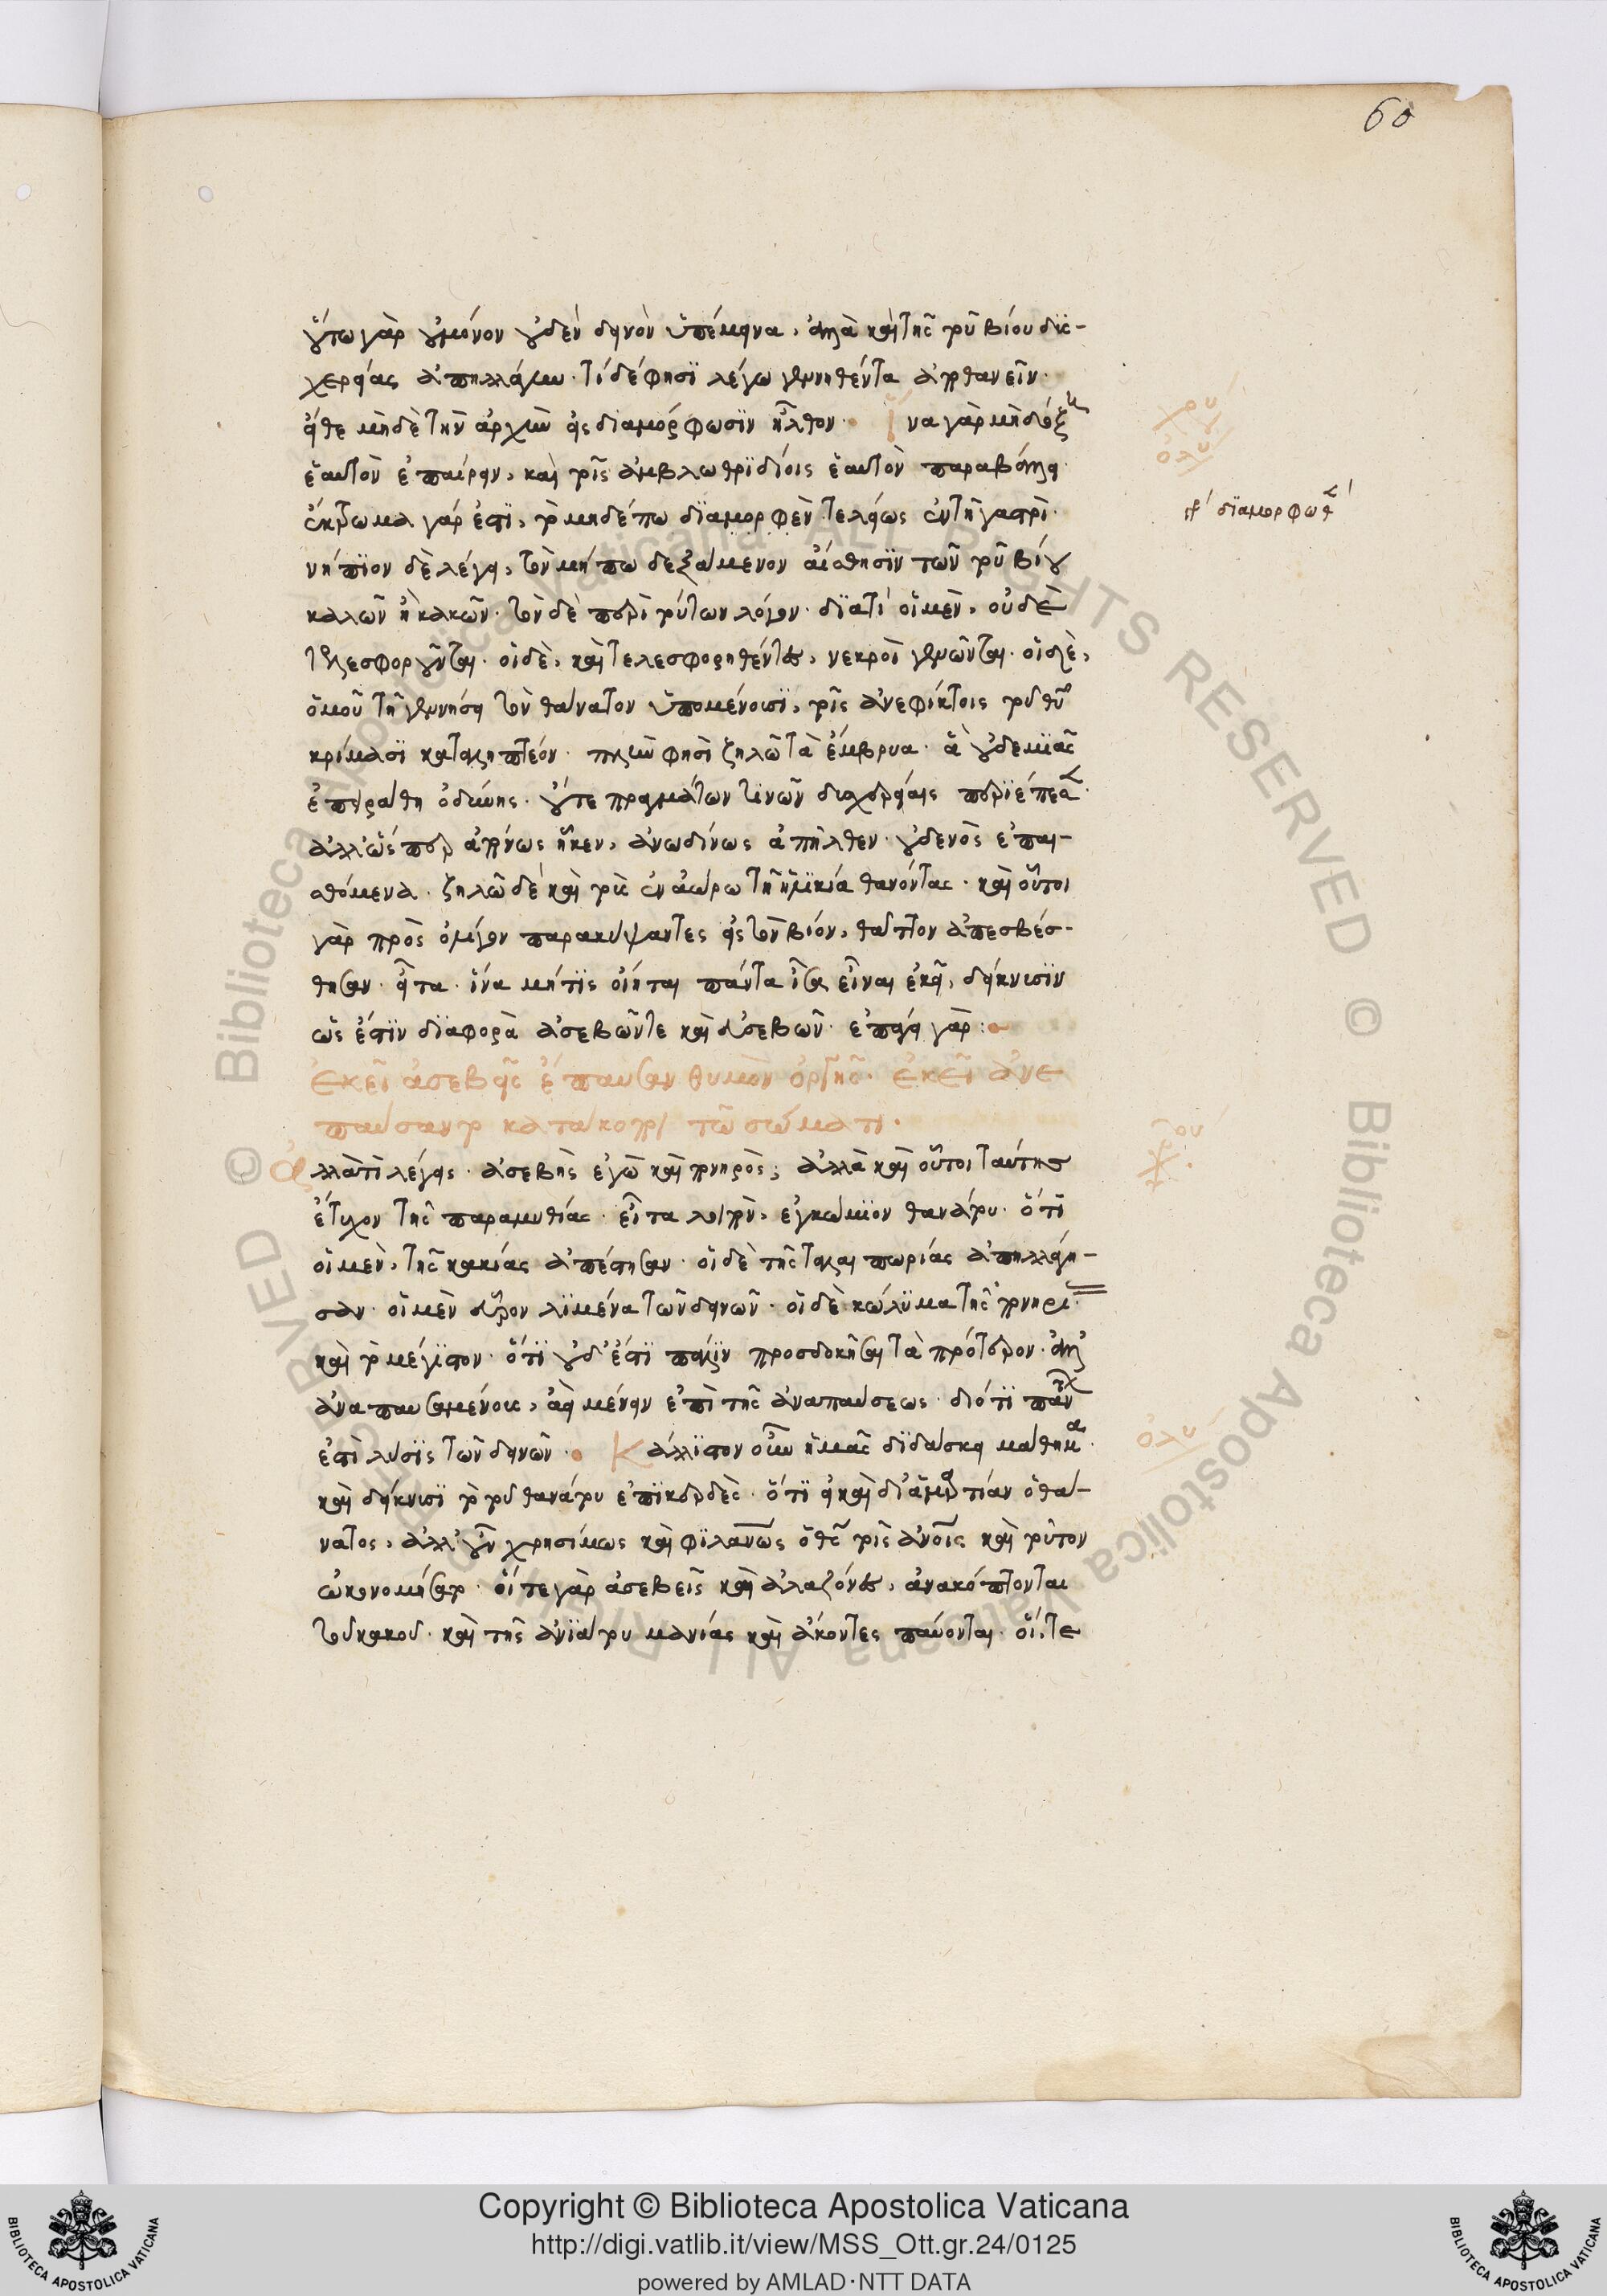 60
οὕτω γὰρ οὐ μόνον οὐδὲν δεινὸν ὑπέμεινα, ἀλλὰ καὶ τῆς τοῦ βίου δυς-
χερείας ἀπηλλάγην. τί δέ φησι λέγω γεννηθέντα ἀποθανεῖν.
εἴθε μηδὲ τὴν ἀρχὴν εἰς διαμόρφωσιν ἦλθον. ἵνα γὰρ μὴ δόξῃ
ἑαυτὸν ἐπαίρειν, καὶ τοῖς ἀμβλωθριδίοις ἑαυτὸν παραβάλλει.
ἔκτρωμα γάρ ἐστι, τὸ μηδέπω διαμορφὲν τελείως ἐν τῇ γαστρί.
νήπιον δὲ λέγει, τὸν μήπω δεξάμενον αἴσθησιν τῶν τοῦ βίου
καλῶν ἢ κακῶν. τὸν δὲ περὶ τούτων λόγον. διατί οἱ μὲν, οὐδὲ
τελεσφοροῦνται. οἱ δὲ, καὶ τελεσφορηθέντες, νεκροὶ γεννῶνται. οἱ δὲ,
ὁμοῦ τῇ γεννήσει τὸν θάνατον ὑπομένουσι, τοῖς ἀνεφίκτοις τοῦ θυ
κρίμασι καταλειπτέον. πλὴν φησὶ ζηλῶ τὰ ἔμβρυα. ἃ οὐδεμιᾶς
ἐπειράθη ὀδύνης. οὔτε πραγμάτων τινῶν δυσχερείαις περιέπεσ
ἀλλ' ὥσπερ ἀπόνως ἧκεν, ἀνωδίνως ἀπῆλθεν. οὐδενὸς ἐπαι-
σθόμενα. ζηλῶ δὲ καὶ τοὺς ἐν ἀώρω τῇ ἡλικία θανόντας. καὶ οὗτοι
γὰρ πρὸς ὀλίγον παρακύψαντες εἰς τὸν βίον, θᾶττον ἀπεσβέσ-
θησαν. εἶτα. ἵνα μή τις οἴηται πάντα ἴσα εἶναι ἐκεῖ, δείκνυσιν
ὡς ἔστιν διαφορὰ ἀσεβῶν τε καὶ εὐσεβῶν. ἐπάγει γάρ:
ἐκεῖ ἀσεβεῖς ἔπαυσαν θυμὸν ὀργῆς. ἐκεῖ ἀνε
παύσαντο κατάκοποι τῶ σώματι.
ἀλλὰ τί λέγεις. ἀσεβὴς ἐγὼ καὶ πονηρὸς; ἀλλὰ καὶ οὗτοι ταύτης
ἔτυχον τῆς παραμυθίας. εἶτα λοιπὸν, ἐγκώμιον θανάτου. ὅτι
οἱ μὲν, τῆς κακίας ἀπέστησαν. οἱ δὲ τῆς ταλαιπωρίας ἀπηλλάγη-
σαν. οἱ μὲν εὗρον λιμένα τῶν δεινῶν. οἱ δὲ κώλυμα τῆς πονηρί.
καὶ τὸ μέγιστον. ὅτι οὐδ' ἔστι πάλιν προσδοκῆσαι τὰ πρότερον. ἀλλ'
ἀναπαυσαμένους, ἀεὶ μένειν ἐπὶ τῆς ἀναπαύσεως. διότι πάντ
ἐστὶ λύσις τῶν δεινῶν. κάλλιστον οὖν ἡμᾶς διδάσκει μάθημα.
καὶ δείκνυσι τὸ τοῦ θανάτου ἐπικερδές. ὅτι εἰ καὶ δι' ἁμαρτίαν ὁ θά-
νατος, ἀλλ' οὖν χρησίμως καὶ φιλανως ὁ θς τοῖς ἀνοις καὶ τοῦτον
ὠκονομήσατο. οἵ τε γὰρ ἀσεβεῖς καὶ ἀλαζόνες, ἀνακόπτονται
τοῦ κακοῦ. καὶ τῆς ἀνιάτου μανίας καὶ ἄκοντες παύονται. οἵ τε
χρυ
ὀλυ
γρ διαμορφωθ
ὀλυ
Copyright © Biblioteca Apostolica Vaticana
http://digi.vatlib.it/view/MSS_Ott.gr.24/0125
powered by AMLAD·NTT DATA
BIBLIOTECA APOSTOLICA VATICANA
BIBLIOTECA APOSTOLICA VATICANA